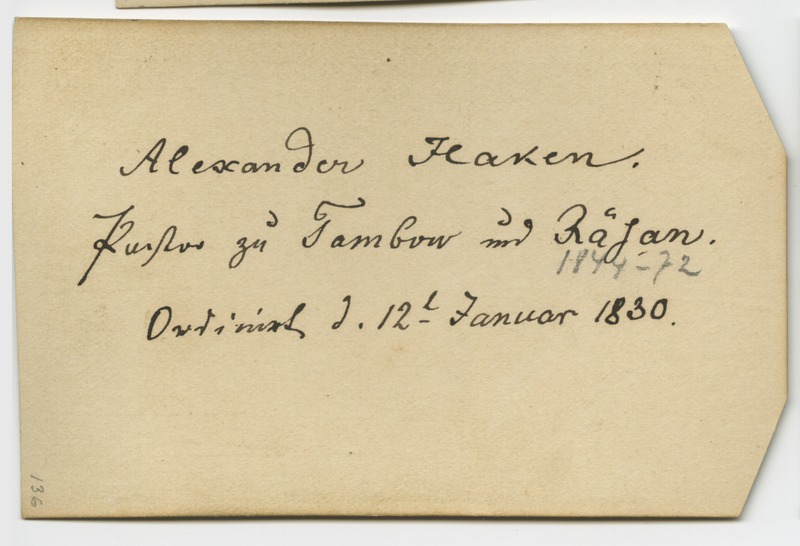 Alexander Haken.
Pastor zu Tambow und Räsan.
1844-72
Ordinirt d. 12t Januar 1830.
136